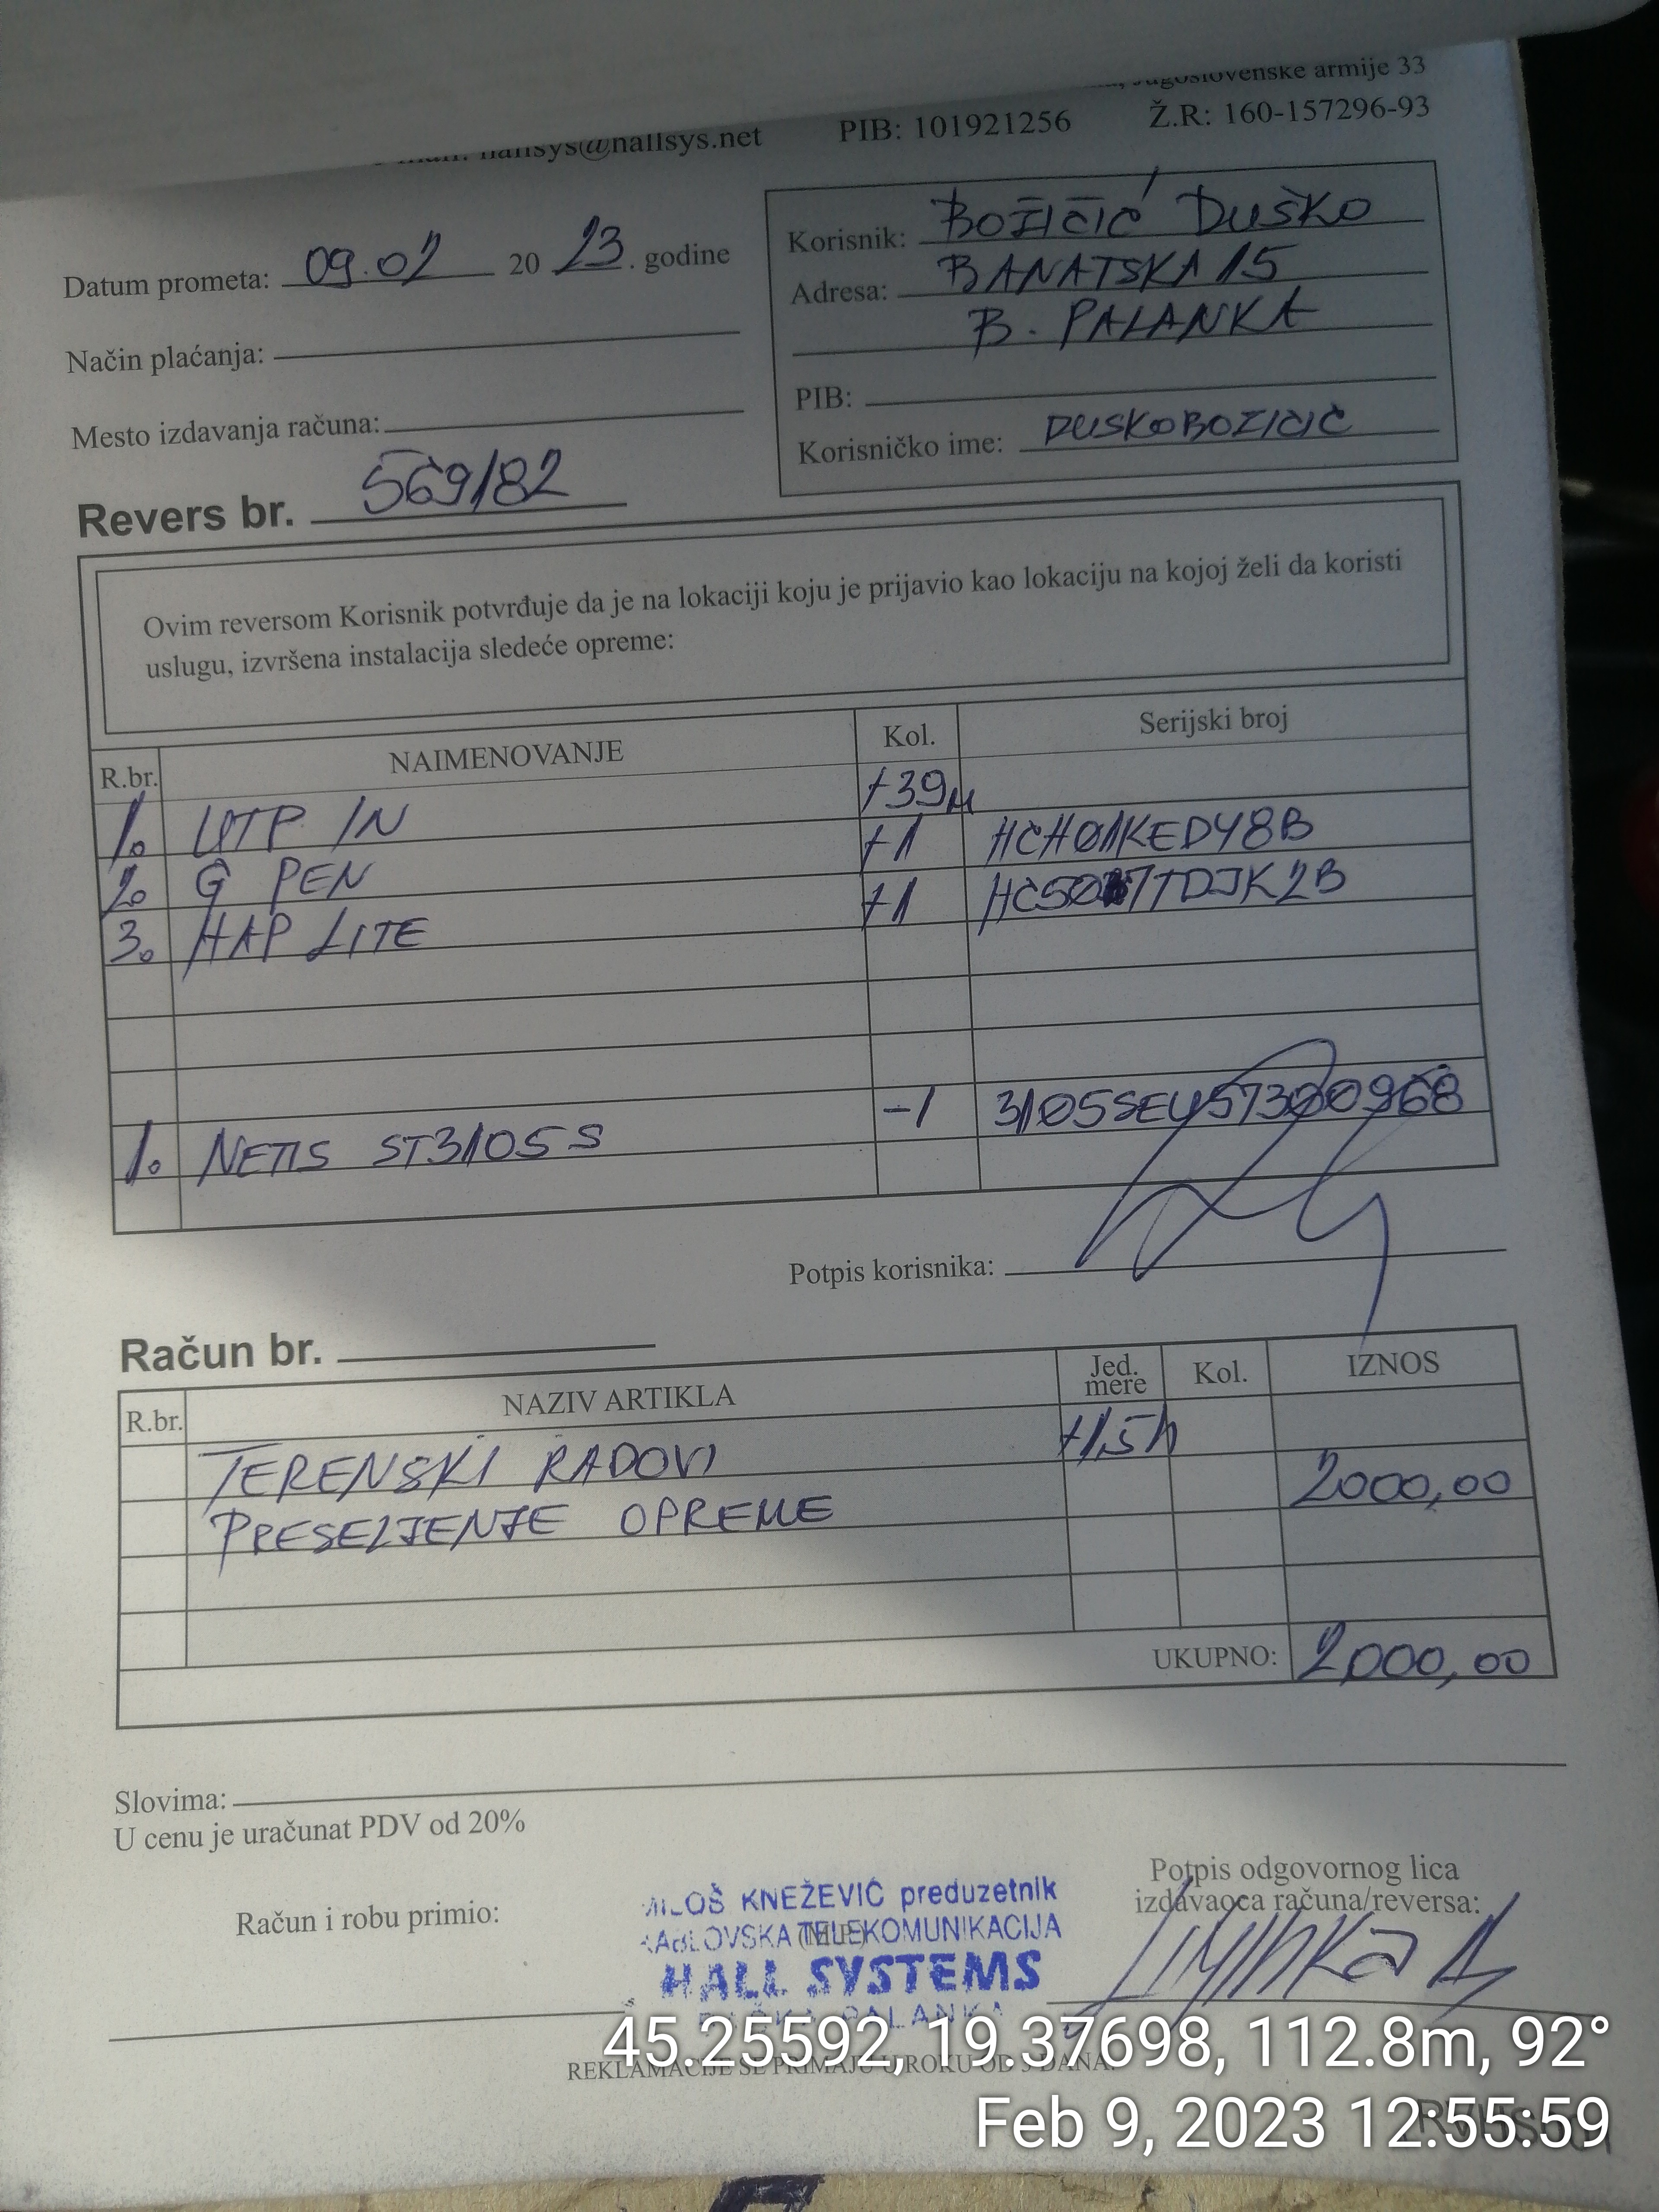 Jugoslovenske armije 33
hallsys@hallsys.net PIB: 101921256 Ž.R: 160-157296-93
Datum prometa: 09.02 2023. godine
Korisnik: BOŽIČIĆ DUŠKO
Adresa: BANATSKA 15
B. PALANKA
Način plaćanja:
PIB:
Mesto izdavanja računa:
Korisničko ime: DUSKOBOZICIC
Revers br. 569/82
Ovim reversom Korisnik potvrđuje da je na lokaciji koju je prijavio kao lokaciju na kojoj želi da koristi
uslugu, izvršena instalacija sledeće opreme:
R.br. NAIMENOVANJE Kol. Serijski broj
1. UTP IN +39m
2. G PEN +1 HCH01KEDY8B
3. HAP LITE +1
1. NETIS ST3105S -1
Potpis korisnika:
Račun br.
R.br. NAZIV ARTIKLA Jed. mere Kol. IZNOS
TERENSKI RADOVI +1,5h
PRESELJENJE OPREME 2000,00
UKUPNO: 2000,00
Slovima:
U cenu je uračunat PDV od 20%
Račun i robu primio:
MILOŠ KNEŽEVIĆ preduzetnik
KABLOVSKA TELEKOMUNIKACIJA
HALL SYSTEMS
BAČKA PALANKA
Potpis odgovornog lica
izdavaoca računa/reversa:
REKLAMACIJE SE PRIMAJU U ROKU OD DANA.
45.25592, 19.37698, 112.8m, 92°
Feb 9, 2023 12:55:59